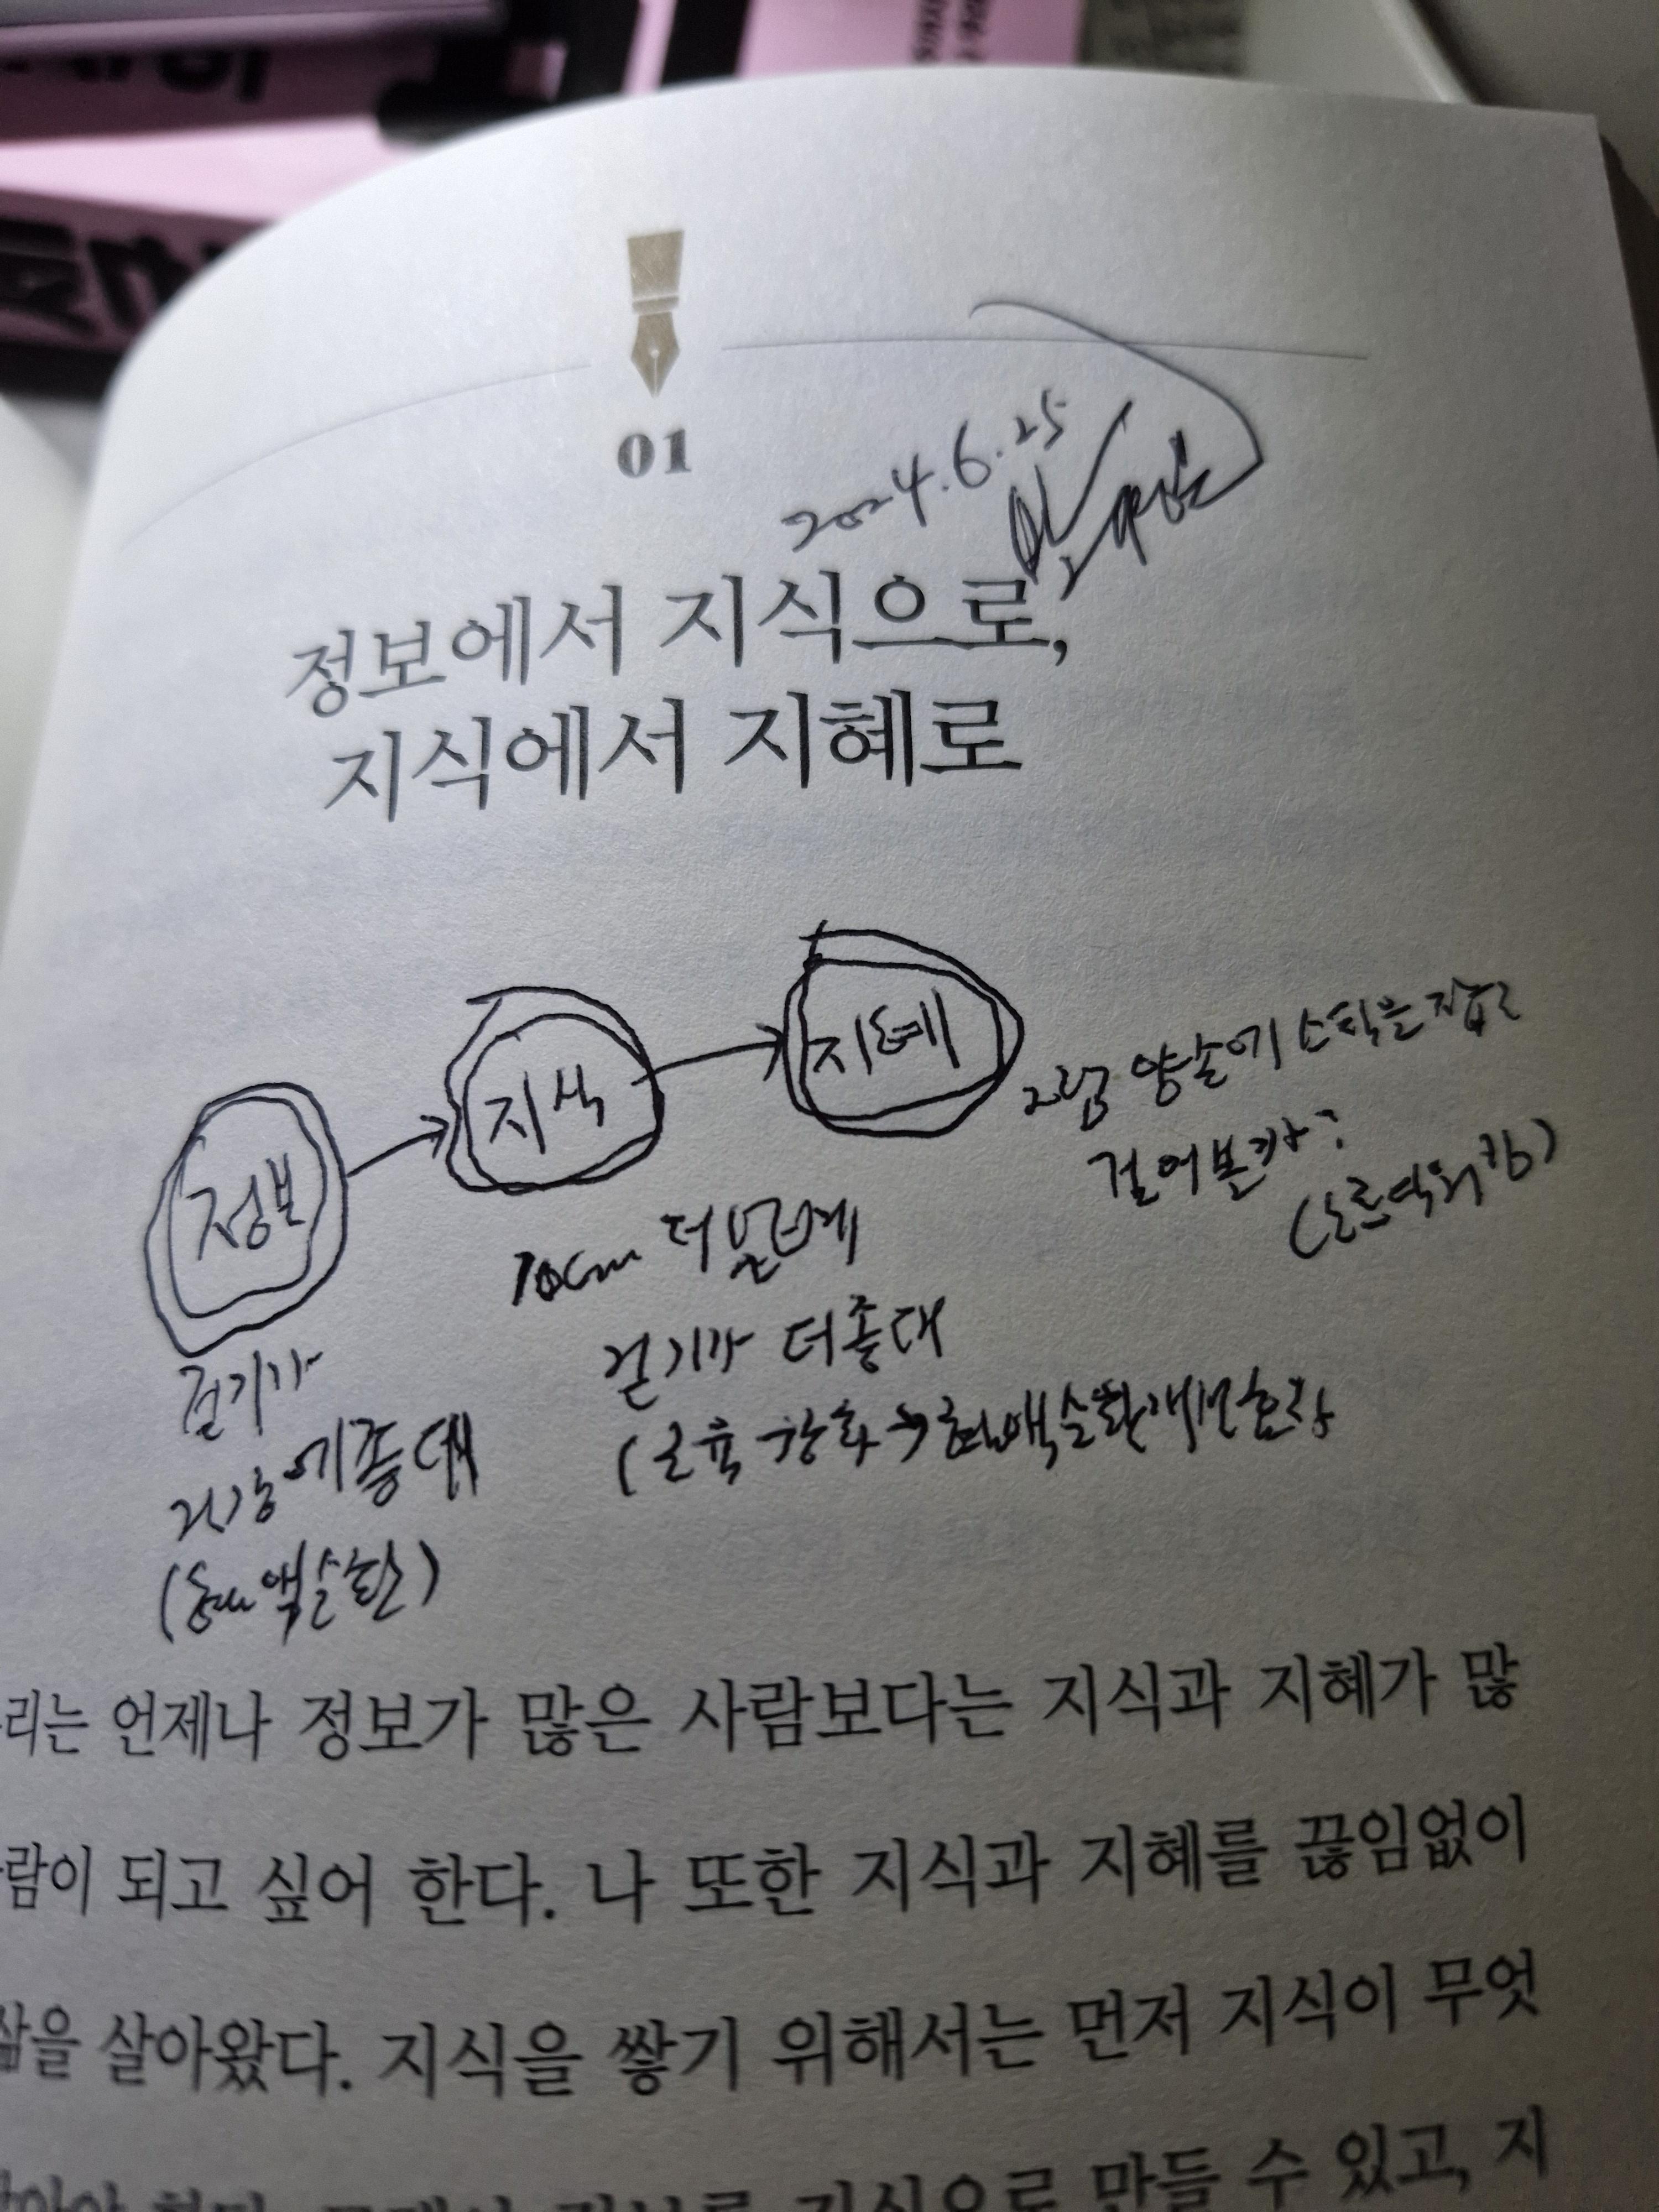 01
2024.6.25
정보에서 지식으로,
지식에서 지혜로
정보
지식
지혜
걷기가
건강에 좋대
(혈액순환)
10cm 더 넓게
걷기가 더 좋대
(근육 강화 → 혈액순환개선 효과
그럼 양손에 스틱을 잡고
걸어볼까?
(노르딕워킹)
리는 언제나 정보가 많은 사람보다는 지식과 지혜가 많
람이 되고 싶어 한다. 나 또한 지식과 지혜를 끊임없이
삶을 살아왔다. 지식을 쌓기 위해서는 먼저 지식이 무엇
지식으로 만들 수 있고, 지